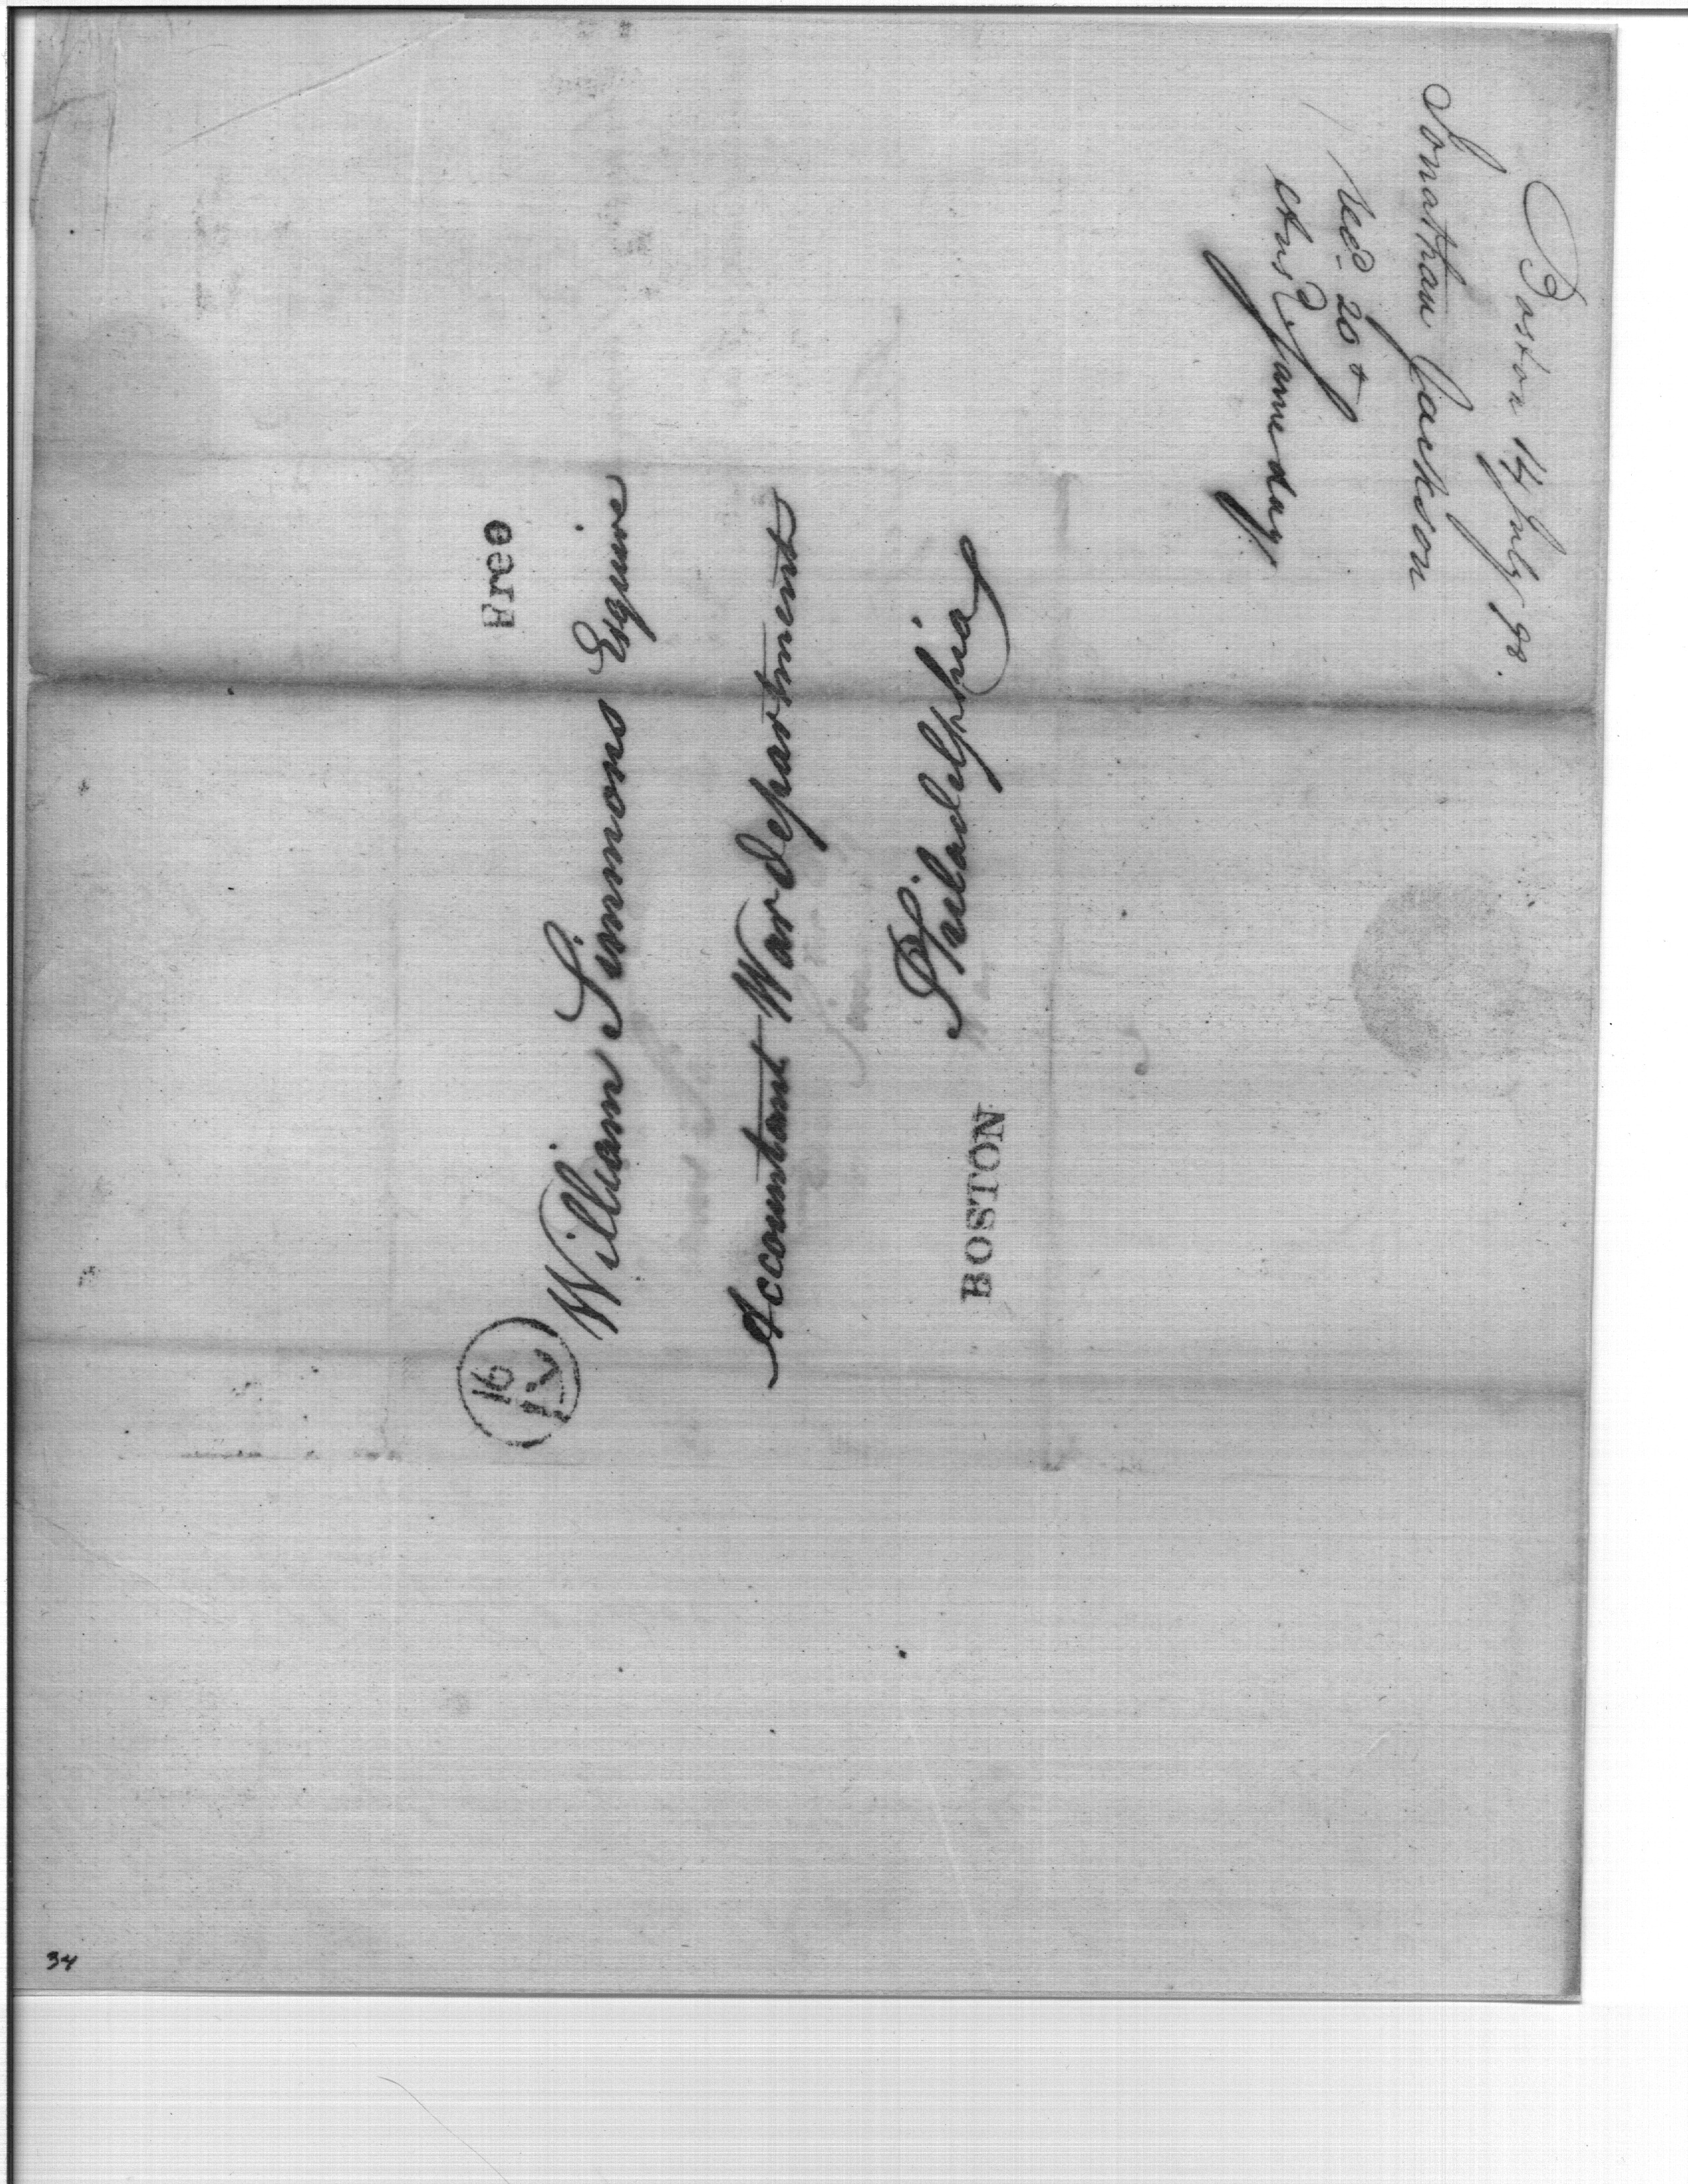 Boston 14 July 98.
Jonathan Jackson
Recd 20th
Ansd Same day
Free
William Simmons Esquire
Accountant War department
Philadelphia
BOSTON
16
34